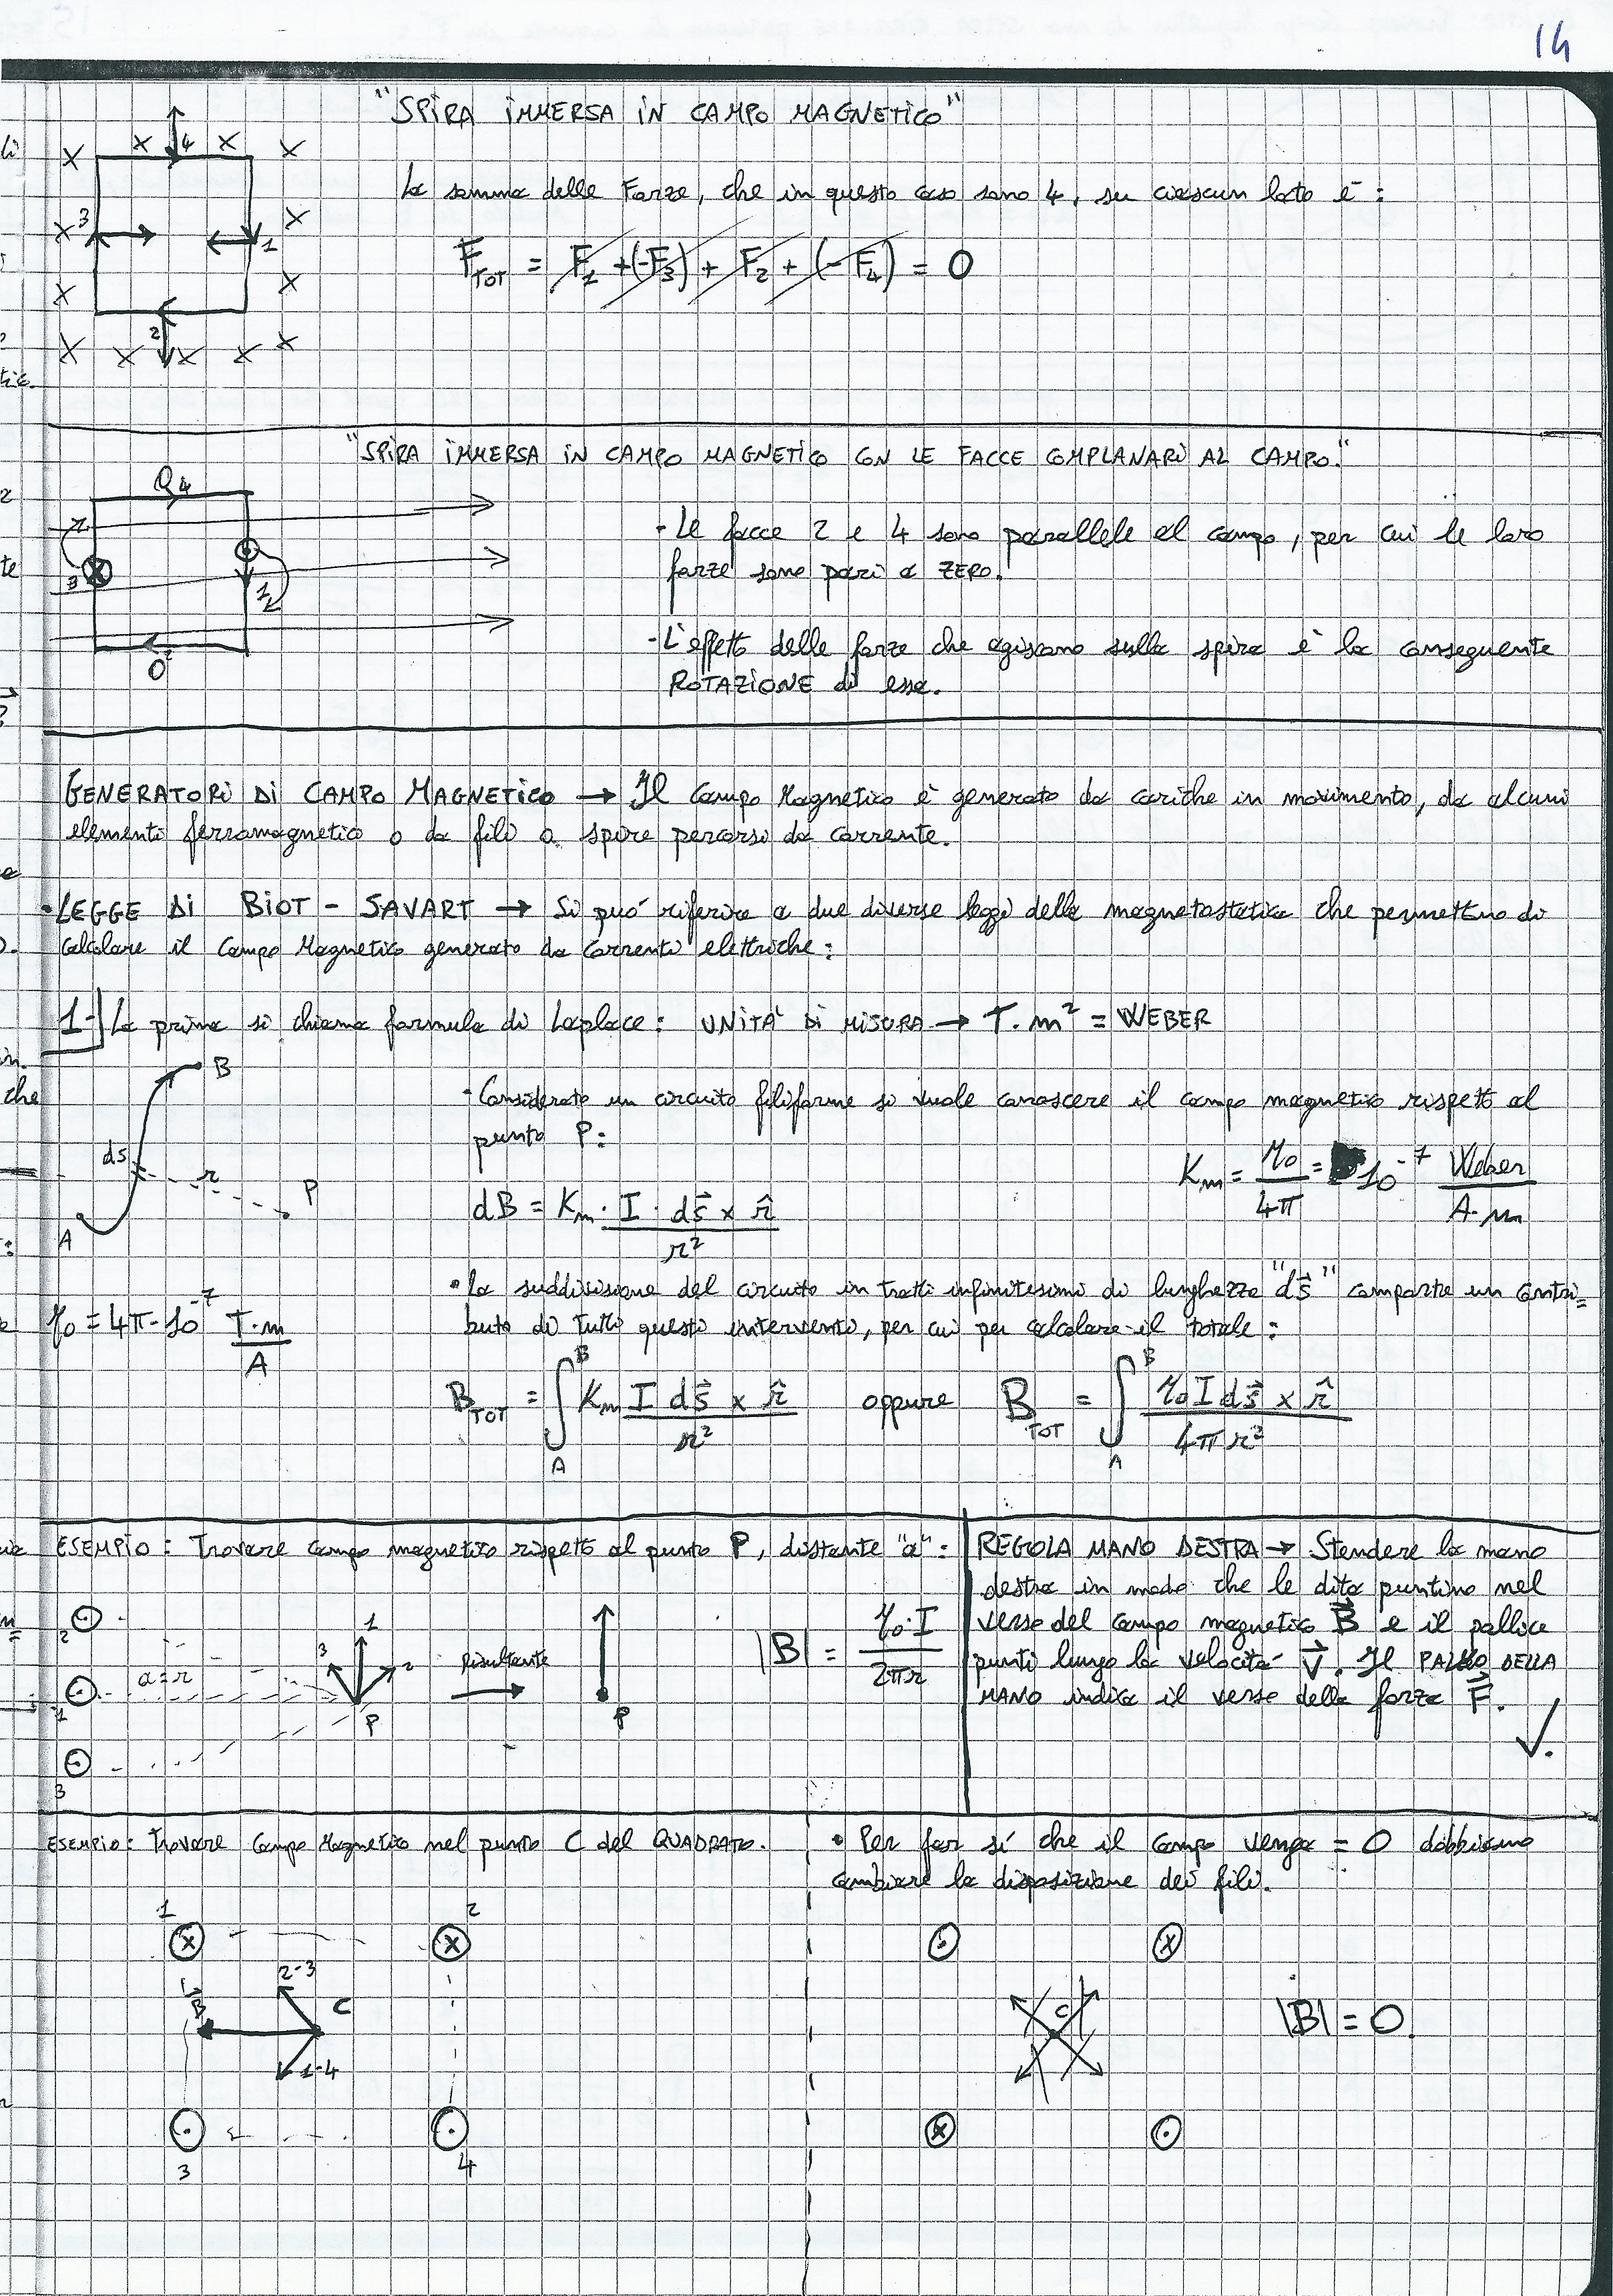 14
"SPIRA IMMERSA IN CAMPO MAGNETICO"
La somma delle Forze, che in questo caso sono 4, su ciascun lato è:
F_TOT = F_1 + (-F_3) + F_2 + (-F_4) = 0
X X 4 X X
X 3 X
1
X X
X X 2 X X X
"SPIRA IMMERSA IN CAMPO MAGNETICO CON LE FACCE COMPLANARI AL CAMPO."
4
3 1
2
O
- Le facce 2 e 4 sono parallele al campo, per cui le loro
forze sono pari a ZERO.
- L'effetto delle forze che agiscono sulla spira è la conseguente
ROTAZIONE di essa.
GENERATORI DI CAMPO MAGNETICO → Il Campo Magnetico è generato da cariche in movimento, da alcuni
elementi ferromagnetico o da fili o spire percorsi da corrente.
• LEGGE DI BIOT - SAVART → Si può riferire a due diverse leggi della magnetostatica che permettono di
calcolare il Campo Magnetico generato da correnti elettriche:
1- La prima si chiama formula di Laplace: UNITÀ DI MISURA → T·m² = WEBER
B
ds
r
P
A
• Considerato un circuito filiforme si vuole conoscere il campo magnetico rispetto al
punto P:
K_m = μ0/4π = 10^-7 Weber/A·m
dB = K_m · I · ds⃗ x r̂ / r²
• La suddivisione del circuito in tratti infinitesimi di lunghezza "ds⃗" comporta un contri=
buto di tutti questi intervento, per cui per calcolare il totale:
μ0 = 4π·10^-7 T·m/A
B_TOT = ∫_A^B K_m I ds⃗ x r̂ / r² oppure B_TOT = ∫_A^B μ0 I ds⃗ x r̂ / 4π r²
ESEMPIO: Trovare campo magnetico rispetto al punto P, distante "a":
2
1
3
a=r
3 1 2
P
Risultante
P
|B| = μ0·I / 2πr
REGOLA MANO DESTRA → Stendere la mano
destra in modo che le dita puntino nel
verso del campo magnetico B⃗ e il pollice
punti lungo la velocità V⃗. Il PALMO DELLA
MANO indica il verso della forza F⃗.
ESEMPIO: Trovare Campo Magnetico nel punto C del QUADRATO.
1 2
2-3
B⃗ C
1-4
3 4
• Per far sí che il Campo venga = 0 dobbiamo
cambiare la disposizione dei fili.
C
|B| = 0.